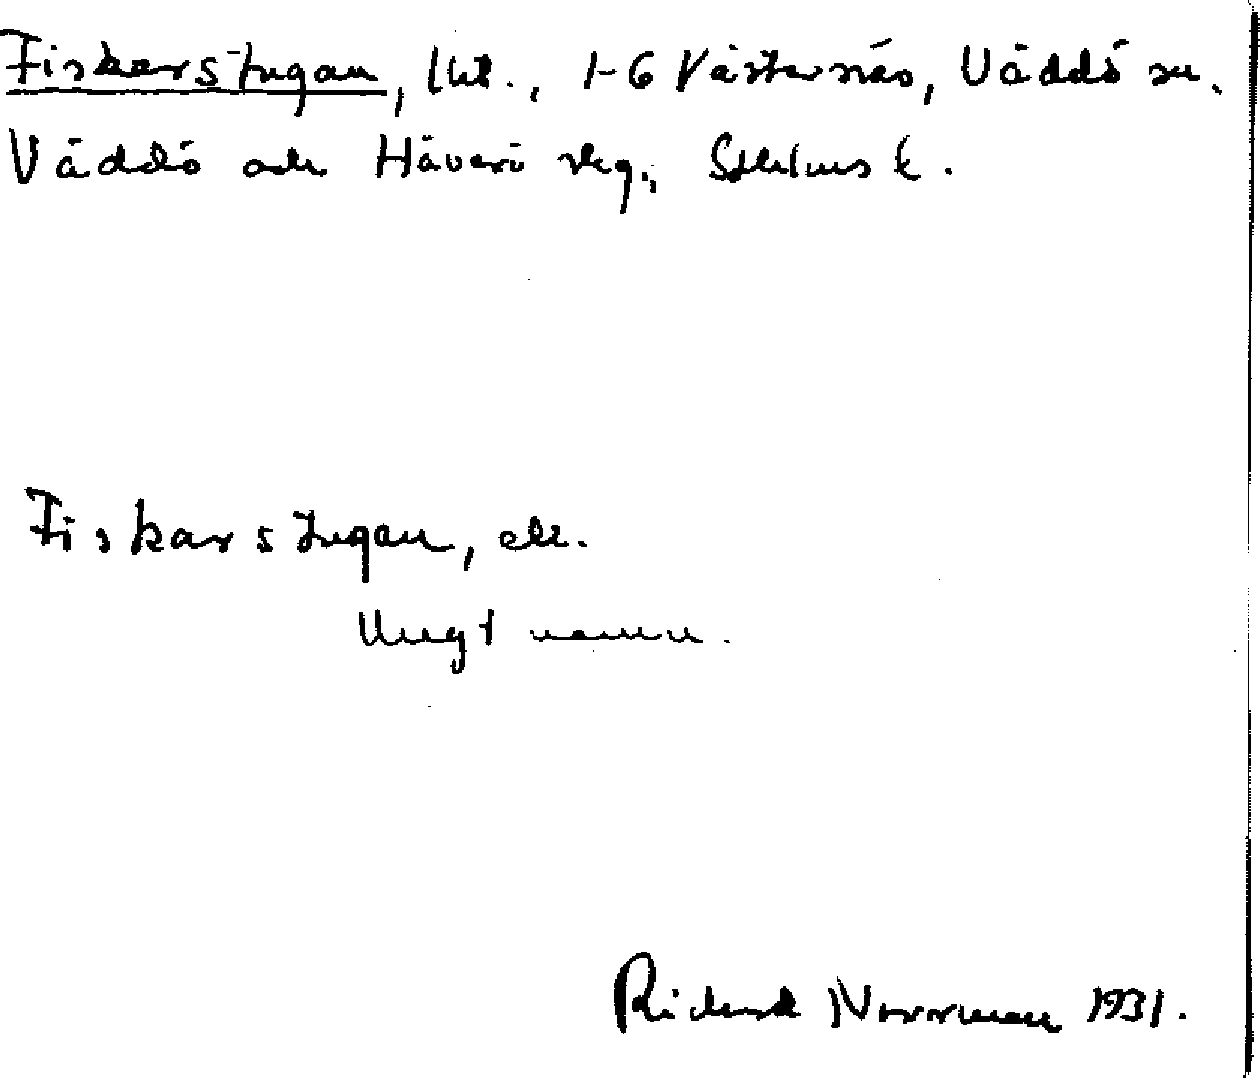 Fiskarstugan, lht., 1-6 Västernäs, Väddö sn.
Väddö och Häverö skg., Sthlms l.
Fiskarstugan,
Ungt namn.
Rickard Norrman 1931.